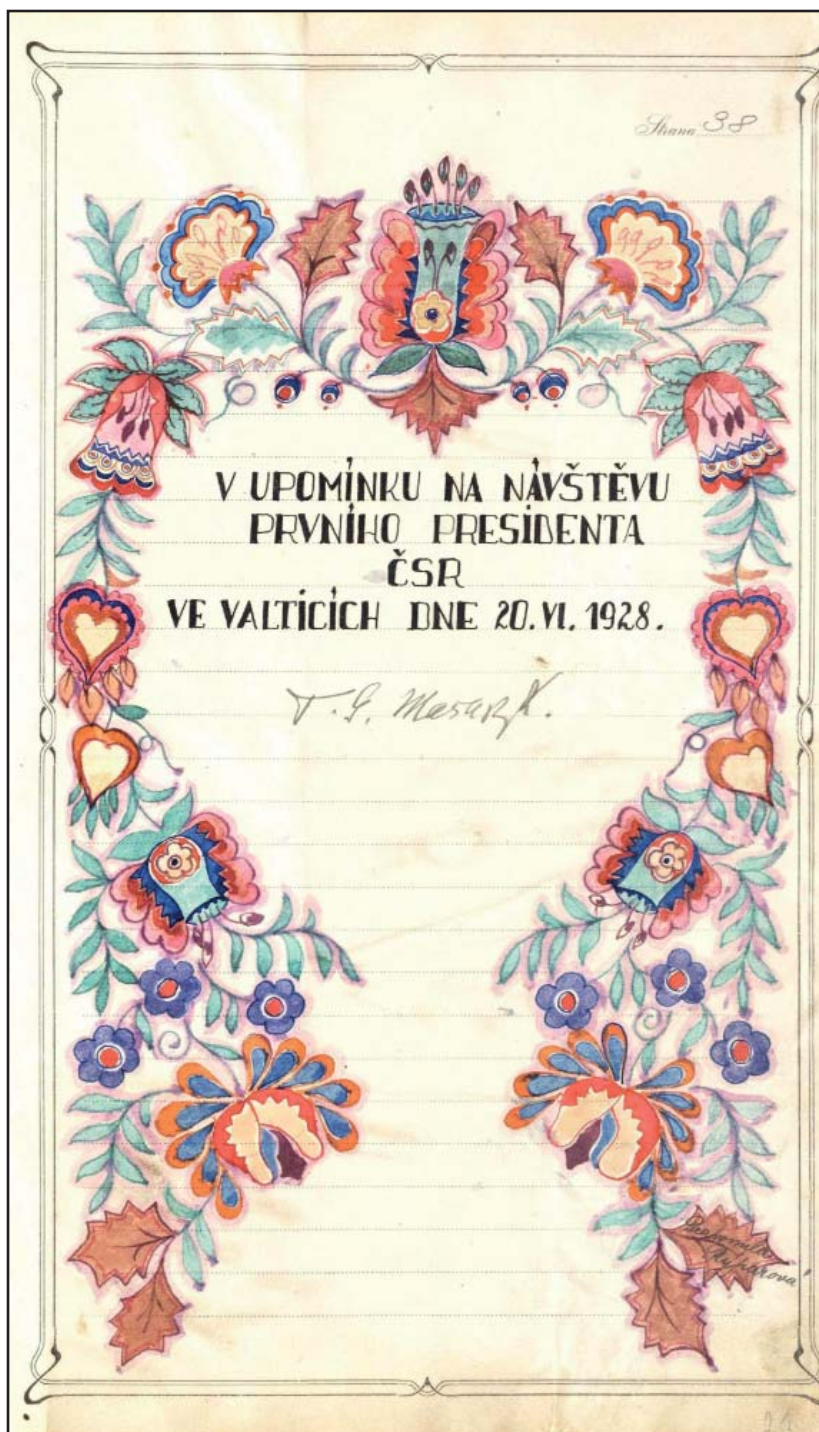 Strana 38
V UPOMÍNKU NA NÁVŠTĚVU
PRVNÍHO PRESIDENTA
ČSR
VE VALTICÍCH DNE 20. VI. 1928.
T. G. Masaryk.